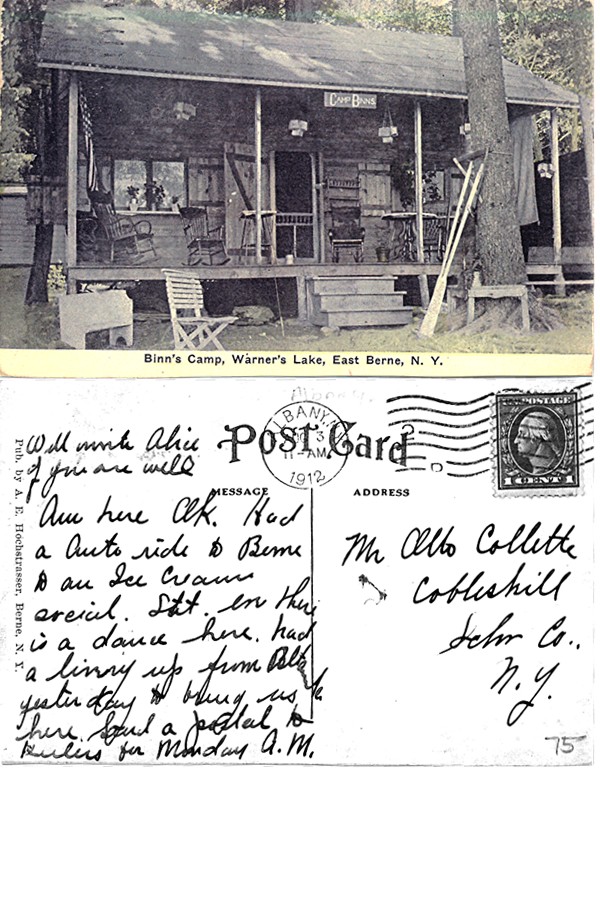 CAMP BINNS
Binn's Camp, Warner's Lake, East Berne, N. Y.
Post Card
ALBANY, N.Y.
3
11-AM
1912
U.S. POSTAGE
1 CENT 1
MESSAGE
ADDRESS
Pub. by A. E. Hochstrasser, Berne, N. Y.
Will write Alice
if you are well
Am here OK. Had
a Auto ride to Berne
to an Ice Cream
social. Sat. eve there
is a dance here. had
a livery up from
yesterday to bring us
here. Send a postal to
for Monday A.M.
Mr Otto Collette
Cobleskill
Schr Co..
N.Y.
75